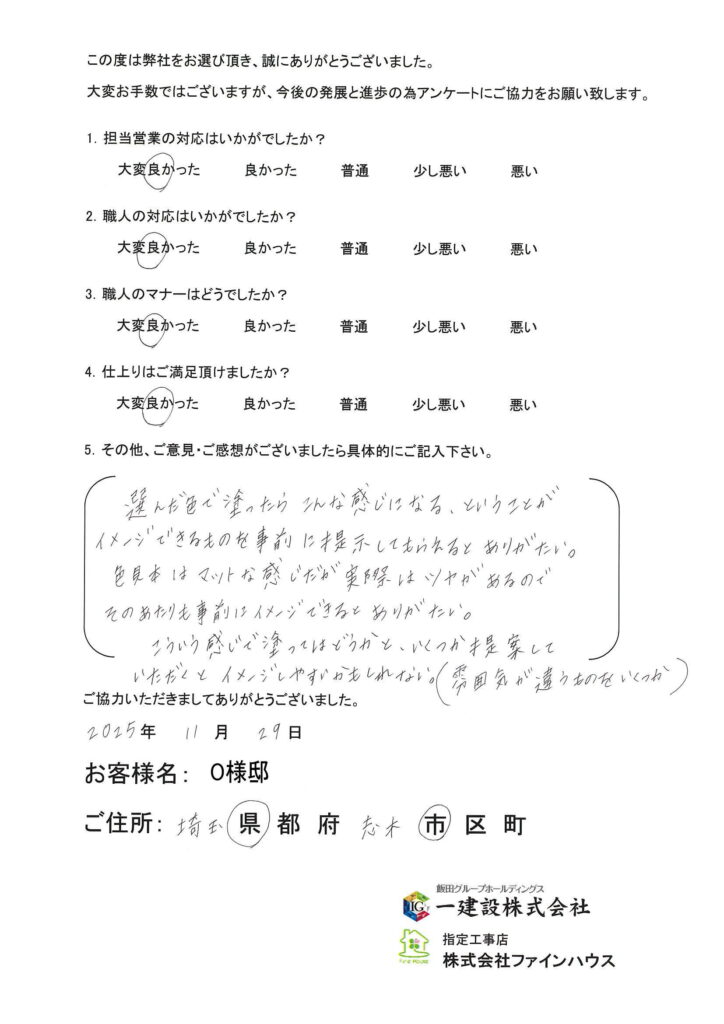 この度は弊社をお選び頂き、誠にありがとうございました。
大変お手数ではございますが、今後の発展と進歩の為アンケートにご協力をお願い致します。
1. 担当営業の対応はいかがでしたか？
大変良かった 良かった 普通 少し悪い 悪い
2. 職人の対応はいかがでしたか？
大変良かった 良かった 普通 少し悪い 悪い
3. 職人のマナーはどうでしたか？
大変良かった 良かった 普通 少し悪い 悪い
4. 仕上りはご満足頂けましたか？
大変良かった 良かった 普通 少し悪い 悪い
5. その他、ご意見・ご感想がございましたら具体的にご記入下さい。
選んだ色で塗ったら こんな感じになる、ということが
イメージできるものを事前に提示してもらえると ありがたい。
色見本は マットな感じだが実際は ツヤがあるので
そのあたりも事前にイメージできると ありがたい。
こういう感じで塗ってはどうかと、いくつか提案して
いただくと イメージしやすいかもしれない。(雰囲気が違うものをいくつか)
ご協力いただきましてありがとうございました。
2025年 11月 29日
お客様名： O様邸
ご住所： 埼玉 県 都 府 志木 市 区 町
飯田グループホールディングス
IG 一建設株式会社
指定工事店
Fine House 株式会社ファインハウス